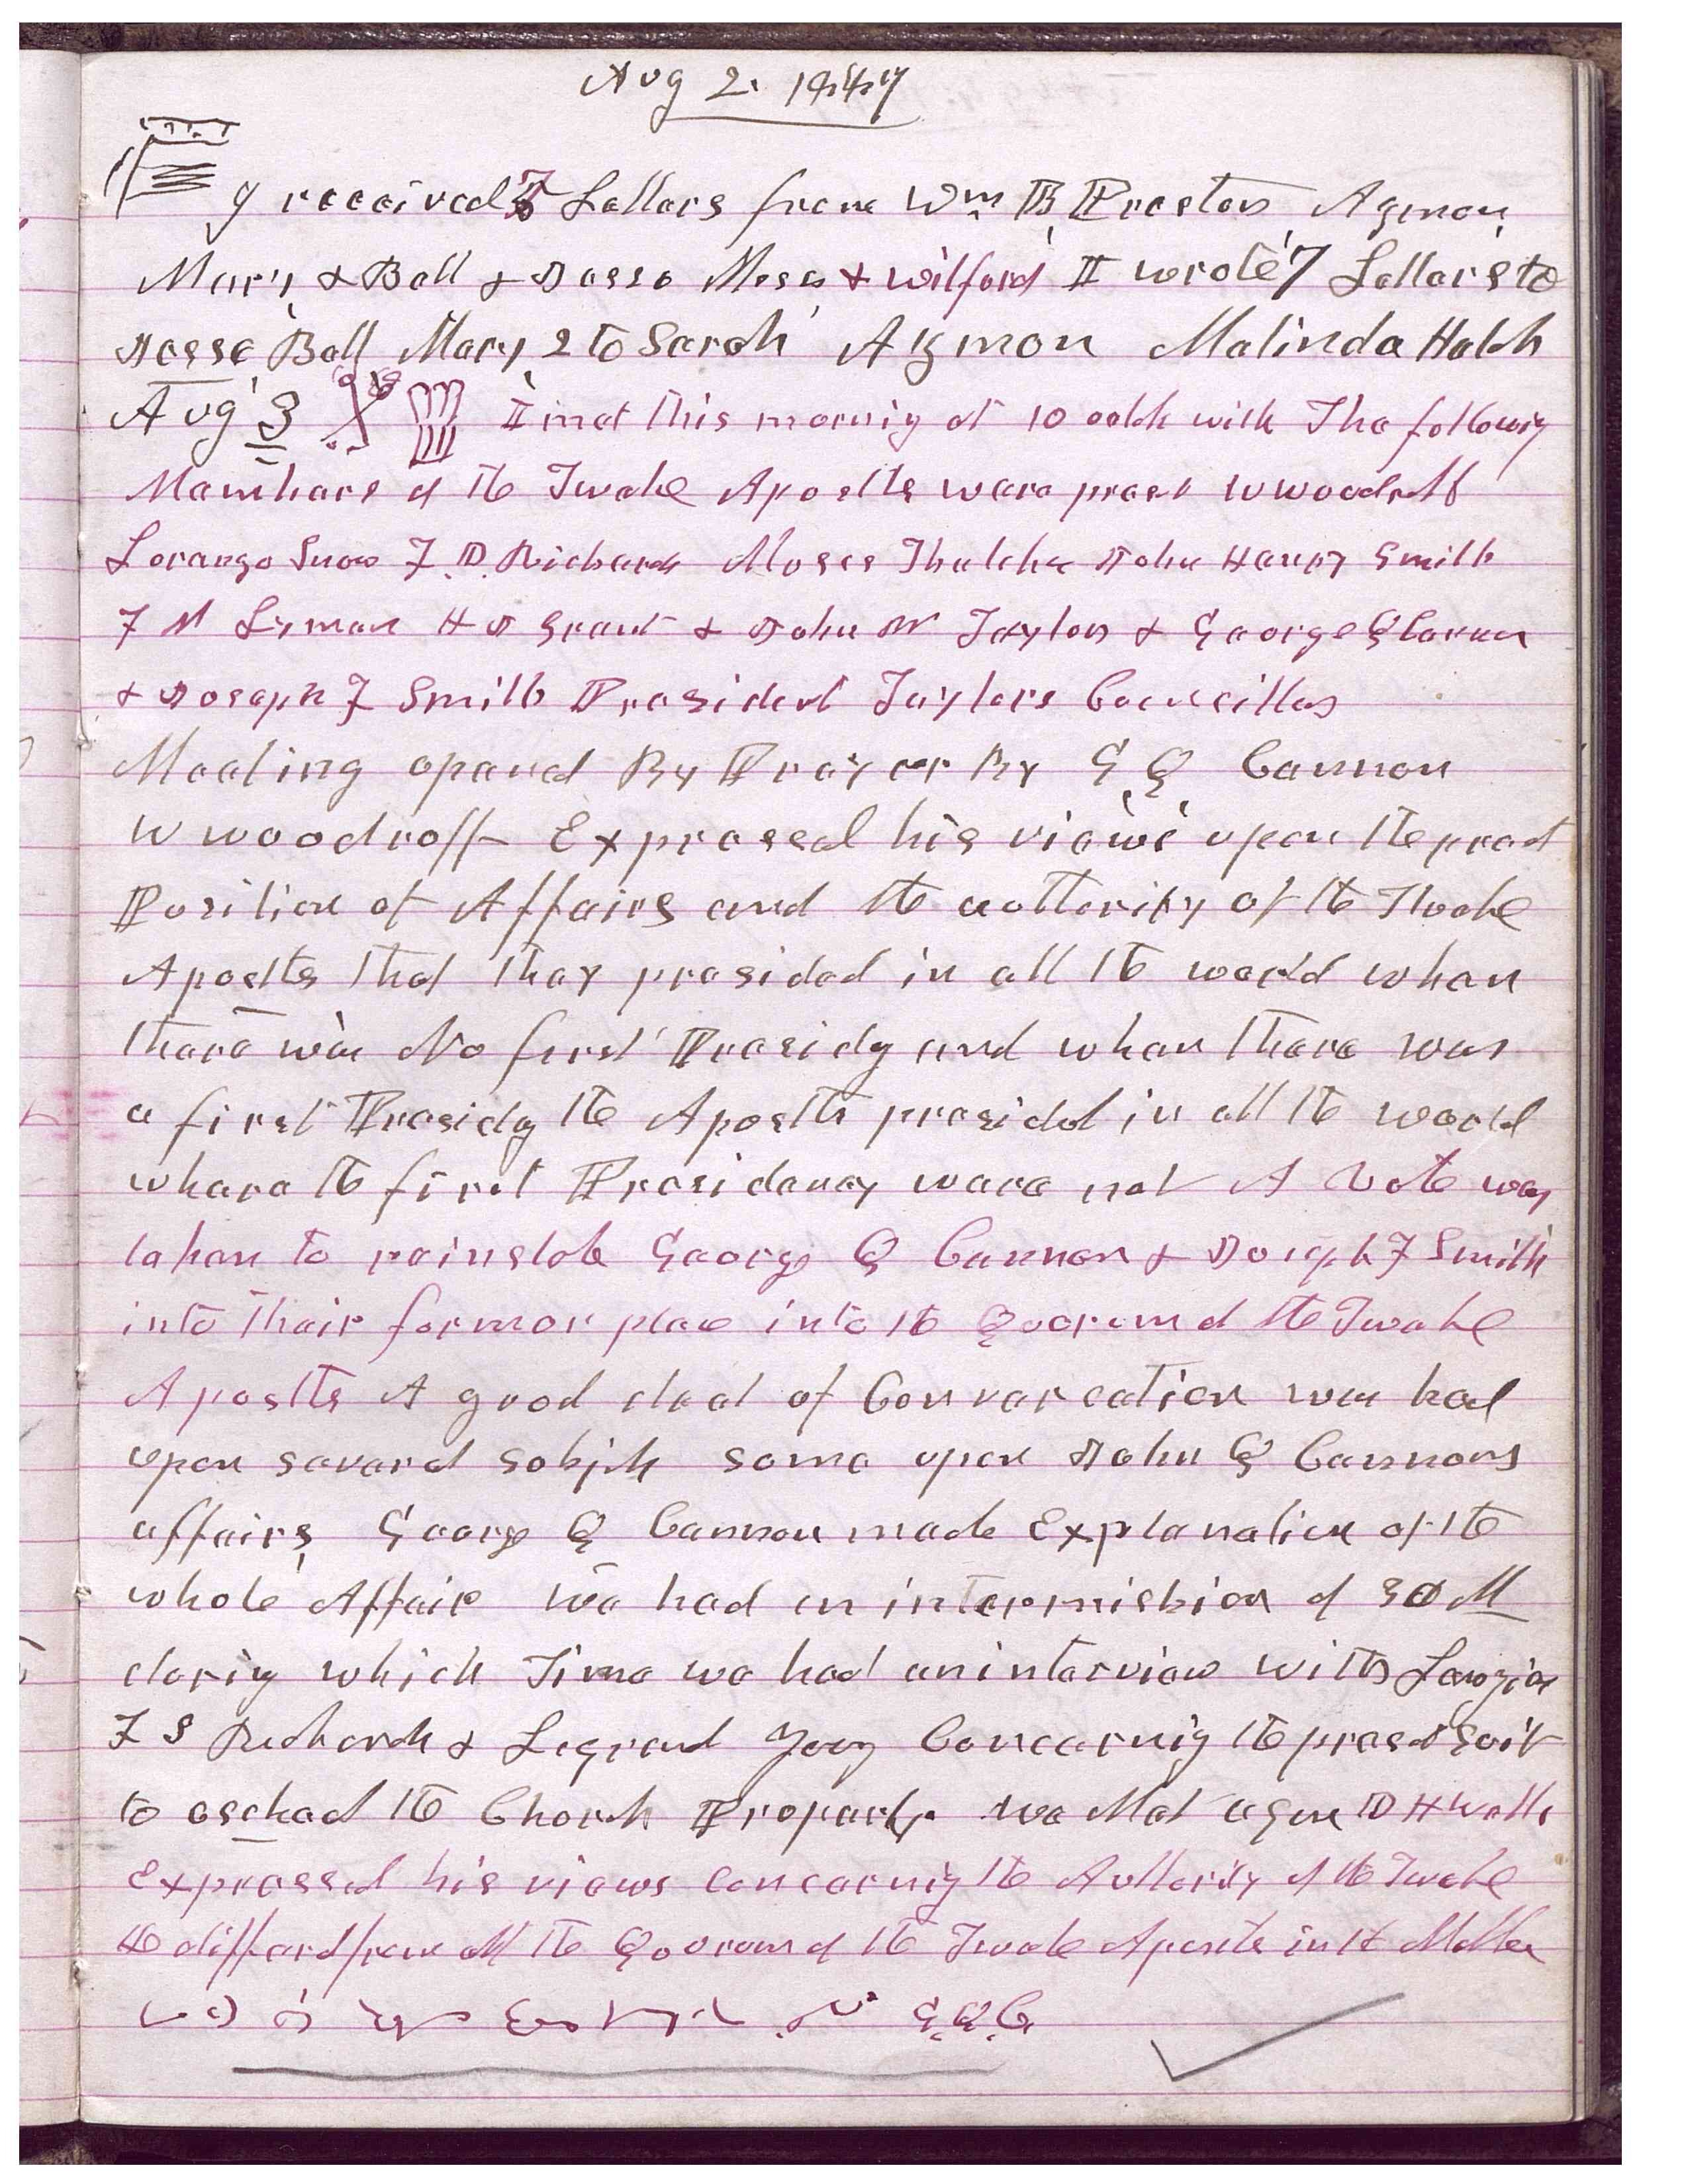 Aug 2. 1887
I received 7 Letters from Wm B Preston Azmon
Mary & Bell & Jesse Moses & Wilford I wrote 7 Letters to
Jesse Bell Mary 2 to Sarah Azmon Malinda Hatch
Aug 3 I met this mornig at 10 oclok with The followig
Members of the Twelve Apostles were preset W Woodruff
Lorenzo Snow F. D. Richards Moses Thatcher John Henry Smith
F M Lyman H J Grant & John W Taylor & George Q Cannon
& Joseph F Smith President Taylors Councillors
Meeting opened By Prayer By G Q Cannon
W Woodruff Expressed his views upon the preset
Position of Affairs and the authority of the Twelve
Apostles that they presided in all the world when
there was No first Presidy and when there was
a first Presidcy the Apostls presided in all the world
where the first Presidency were not A Vote was
taken to reinstate George Q Cannon & Joseph F Smith
into their former place into the Quorum of the Twelve
Apostles A good deal of Conversation was had
upon several subjcts some upon John Q Cannons
affairs George Q Cannon made Explanation of the
whole Affair we had an intermission of 30 M
durig which Time we had an interview with Lawyer
F S Richards & Legrand Young Concernig the preset suit
to escheat the Church Property. we Met again D H Wells
Expressed his views concernig the Authority of the Twelve
He differd from all the Quorum of the Twelve Apostls in the Matter
G. Q. C.